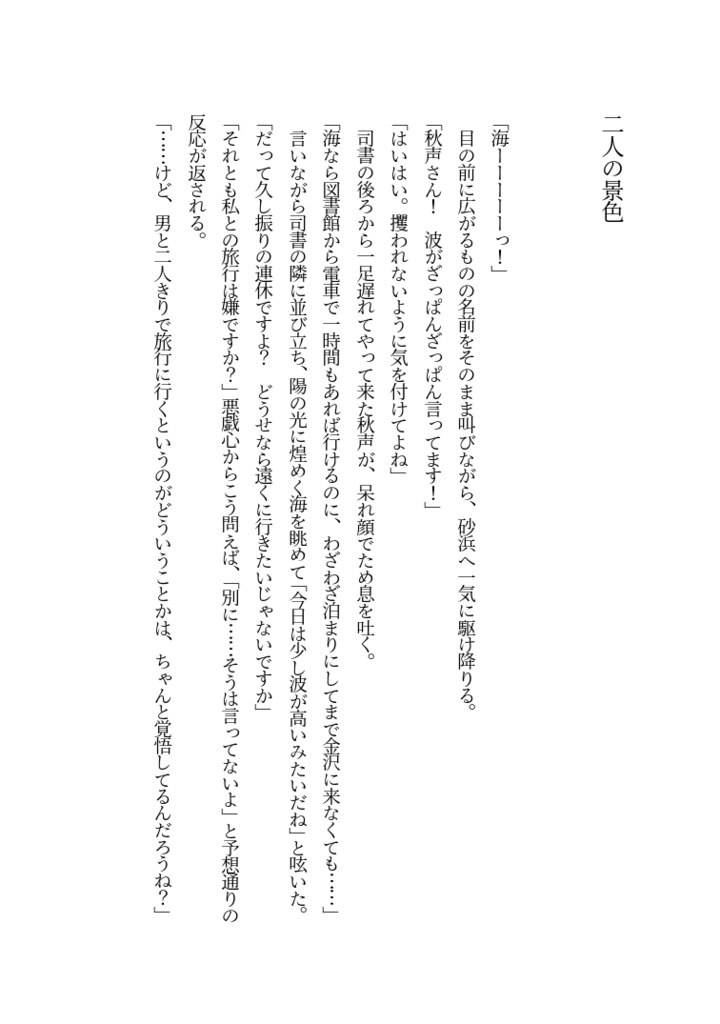 二人の景色
「海ーーーーーっ！」
　目の前に広がるものの名前をそのまま叫びながら、砂浜へ一気に駆け降りる。
「秋声さん！　波がざっぱんざっぱん言ってます！」
「はいはい。攫われないように気を付けてよね」
　司書の後ろから一足遅れてやって来た秋声が、呆れ顔でため息を吐く。
「海なら図書館から電車で一時間もあれば行けるのに、わざわざ泊まりにしてまで金沢に来なくても……」
　言いながら司書の隣に並び立ち、陽の光に煌めく海を眺めて「今日は少し波が高いみたいだね」と呟いた。
「だって久し振りの連休ですよ？　どうせなら遠くに行きたいじゃないですか」
「それとも私との旅行は嫌ですか？」悪戯心からこう問えば、「別に……そうは言ってないよ」と予想通りの
反応が返される。
「……けど、男と二人きりで旅行に行くというのがどういうことかは、ちゃんと覚悟してるんだろうね？」